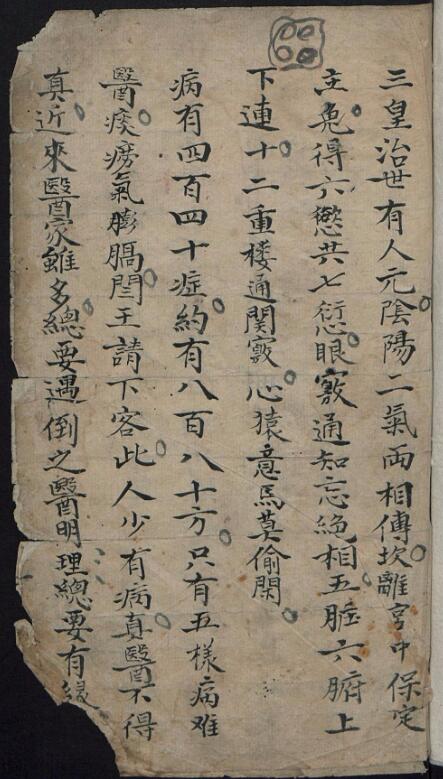 三皇治世有人元陰陽二氣両相傳坎離宮中保定
主免得六慾共七愆眼竅通知忘絶相五臟六腑上
下連十二重楼通関竅心猿意馬莫偷閑
病有四百四十症約有八百八十方只有五樣病难
醫痰癆氣膨膈閻王請下客此人少有病真醫不得
真近來醫家雖多總要遇倒之醫明理總要有緣